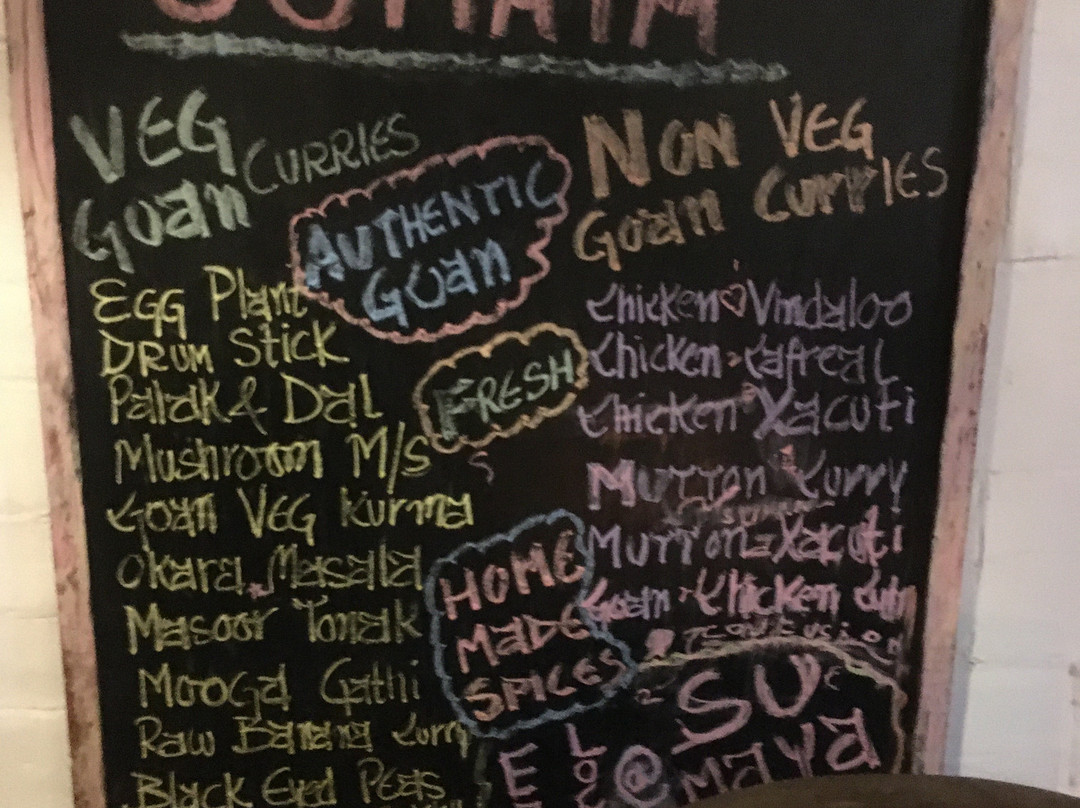 VEG CURRIES
Goan
AUTHENTIC
Goan
FRESH
Egg Plant
DRUM Stick
Palak & Dal
Mushroom M/S
Goan VEG Kurma
Okara Masala
Masoor Tonak
Mooga Gathi
Raw Banana Curry
Black Eyed Peas
HOME
MADE
SPICES
NON VEG
Goan Curries
Chicken Vindaloo
Chicken Cafreal
Chicken Xacuti
Mutton Curry
Mutton Xacuti
Goan Chicken
SU
@ maya